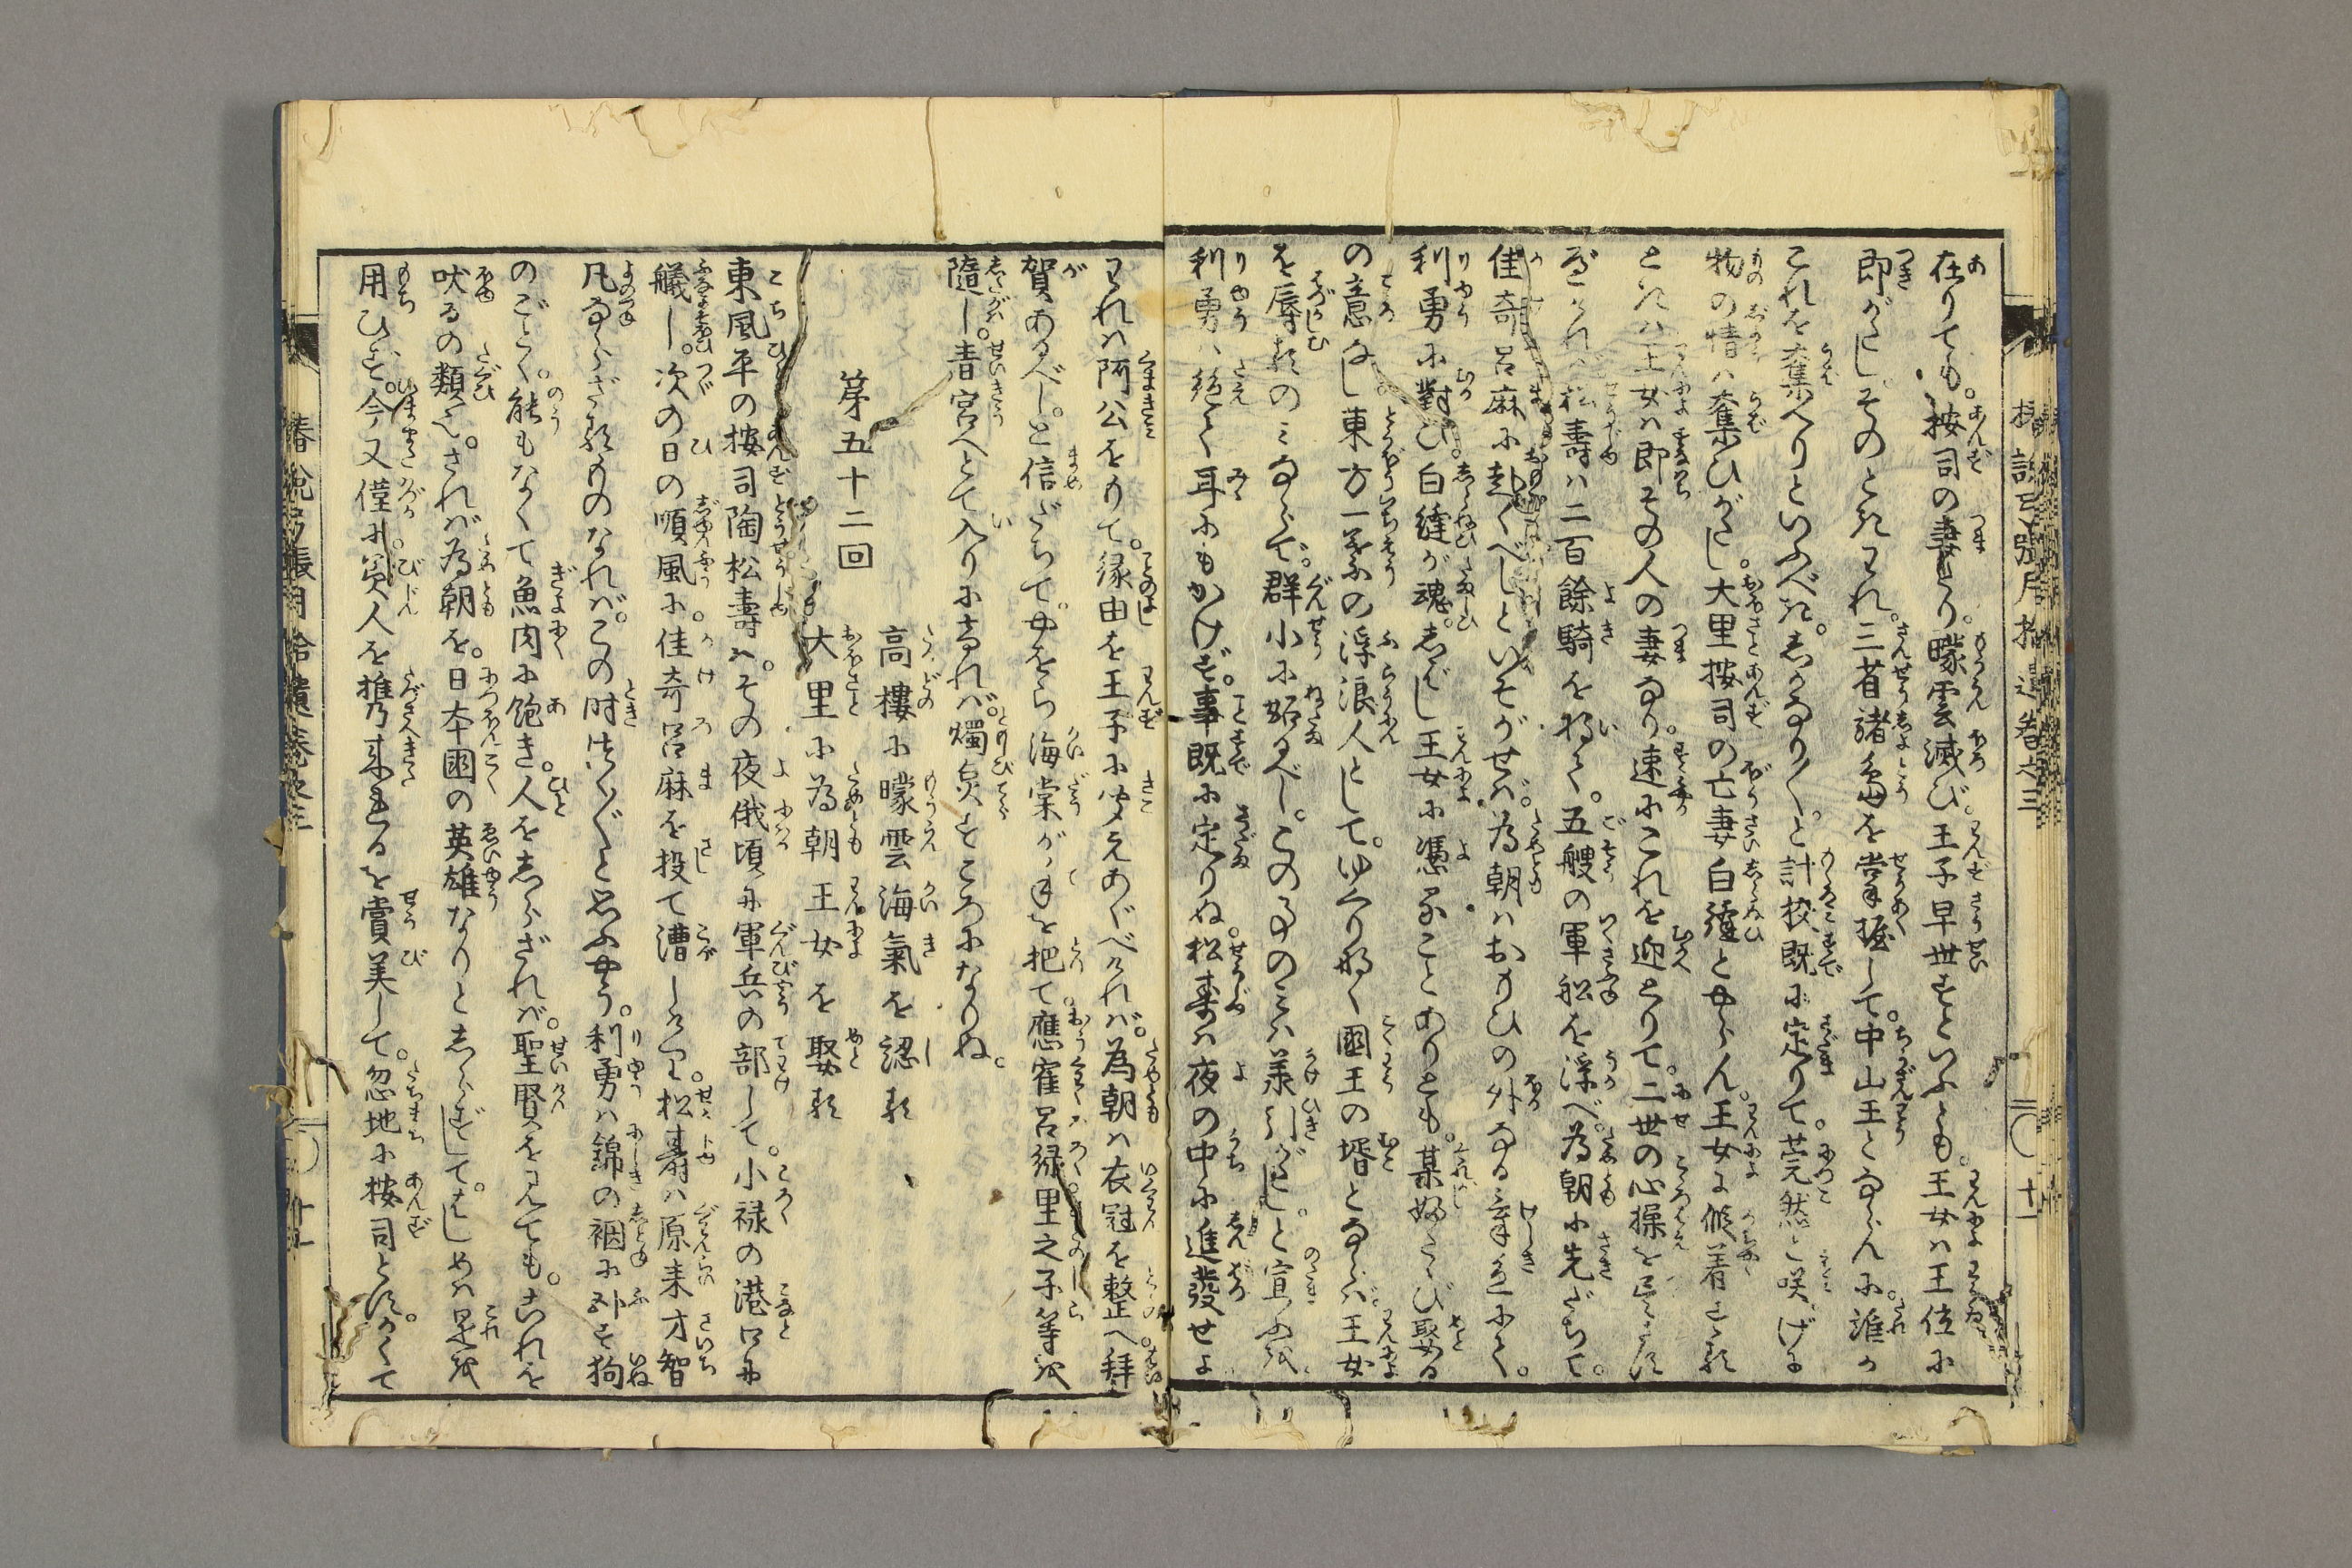 在りても。按司の妻たり。矇雲滅び。王子早世すといふとも。王女ハ王位に
即がたし。そのときわれ。三省諸島を掌握して。中山王とならんに。誰か
これを奪へりといふべき。しかなり〳〵。と計校既に定りて。莞然と咲。げに
物の情ハ奪ひがたし。大里按司の亡妻白縫とやらん。王女に倏着する
といへハ王女ハ即その人の妻なり。速にこれを迎とりて。二世の心操を
松壽ハ二百餘騎を将て。五艘の軍舩を浮べ。為朝に先だちて。
佳奇呂麻に赴くべしといそがせバ。為朝ハおもひの外なる
利勇に對ひ。白縫が魂。しばし王女に憑ることありとも。某婦ふたゝび娶る
の意なし東方一峯の浮浪人として。ゆくりなく國王の壻とならバ。王女
を辱るのミならで。群小に妬るべし。この事のミハ承引がたし。と宣ふを
利勇ハ絶て耳にもかけず。事既に定りぬ。松壽ハ夜の中に進發せよ
われハ阿公をもて。縁由を王子に聞えあぐべけれバ。為朝ハ衣冠を整へ拜
賀あるべし。と信だちて。やをら海棠が手を把て。應寉呂禄里之子等を
隨し。青宮へとて入りにければ。燭炱すころになりぬ。
第五十二回
高樓に矇雲海氣を認る
大里に為朝王女を娶る
東風平の按司陶松壽ハ。その夜俄頃に軍兵の部して。小禄の港口に
艤し。次の日の順風に。佳奇呂麻を投て漕しけり。松壽ハ原来才智
凡ならざるものなれバ。この時つく〴〵と思ふやう。利勇ハ錦の裀に臥す狗
のごとく。能もなくて魚肉に飽き。人をしらざれバ。聖賢を見ても。これを
吠るの類也。されバ為朝を。日本國の英雄なりとしらずして。はじめハ是を
用ひず。今又僅に。美人を携来れるを賞美して。忽地に按司とす。かくて
椿説弓張月拾遺巻之三
椿説弓張月拾遺巻之三
十一